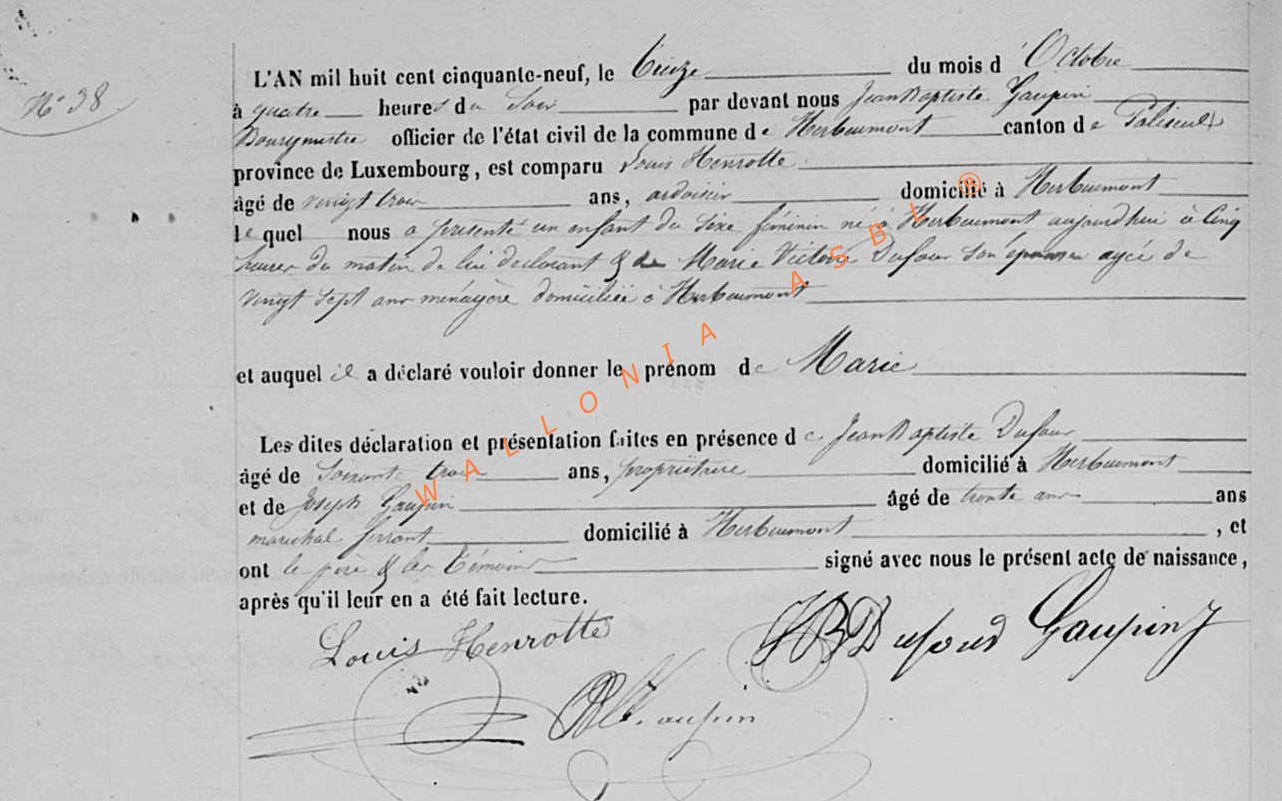 N° 38
L'AN mil huit cent cinquante-neuf, le treize du mois d'Octobre
à quatre heures du Soir par devant nous Jean Baptiste Gaupin
Bourgmestre officier de l'état civil de la commune de Herbeumont canton de Paliseul
province de Luxembourg, est comparu Louis Henrotte
âgé de vingt trois ans, ardoisier domicilié à Herbeumont
lequel nous a présenté un enfant du sexe féminin né à Herbeumont aujourdhui à cinq
heures du matin de lui déclarant & de Marie Victoire Dufour son épouse agée de
vingt sept ans ménagère domiciliée à Herbeumont
et auquel il a déclaré vouloir donner le prénom de Marie
Les dites déclaration et présentation faites en présence de Jean Baptiste Dufour
âgé de soixante trois ans, propriétaire domicilié à Herbeumont
et de Joseph Gaupin âgé de trente ans ans
maréchal ferrant domicilié à Herbeumont, et
ont le père & les témoins signé avec nous le présent acte de naissance,
après qu'il leur en a été fait lecture.
Louis Henrotte
JB Dufour Gaupin J
Gaupin
WALLONIA ASBL ®